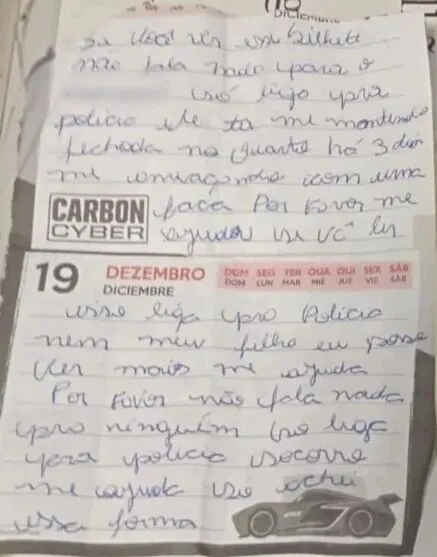 DICIEMBRE
se você ver esse bilhete
não fala nada para o
só liga pra
policia ele ta me mantendo
fechada no quarto há 3 dias
me ameaçando com uma
CARBON faca Por Favor me
CYBER ajuda se vc ler
19 DEZEMBRO DOM SEG TER QUA QUI SEX SÁB
DICIEMBRE DOM LUN MAR MIÉ JUE VIE SÁB
isso liga pra Policia
nem meu filho eu posso
ver mais me ajuda
Por Favor não fala nada
pra ninguém so liga
para policia socorro
me ajuda so achei
essa forma